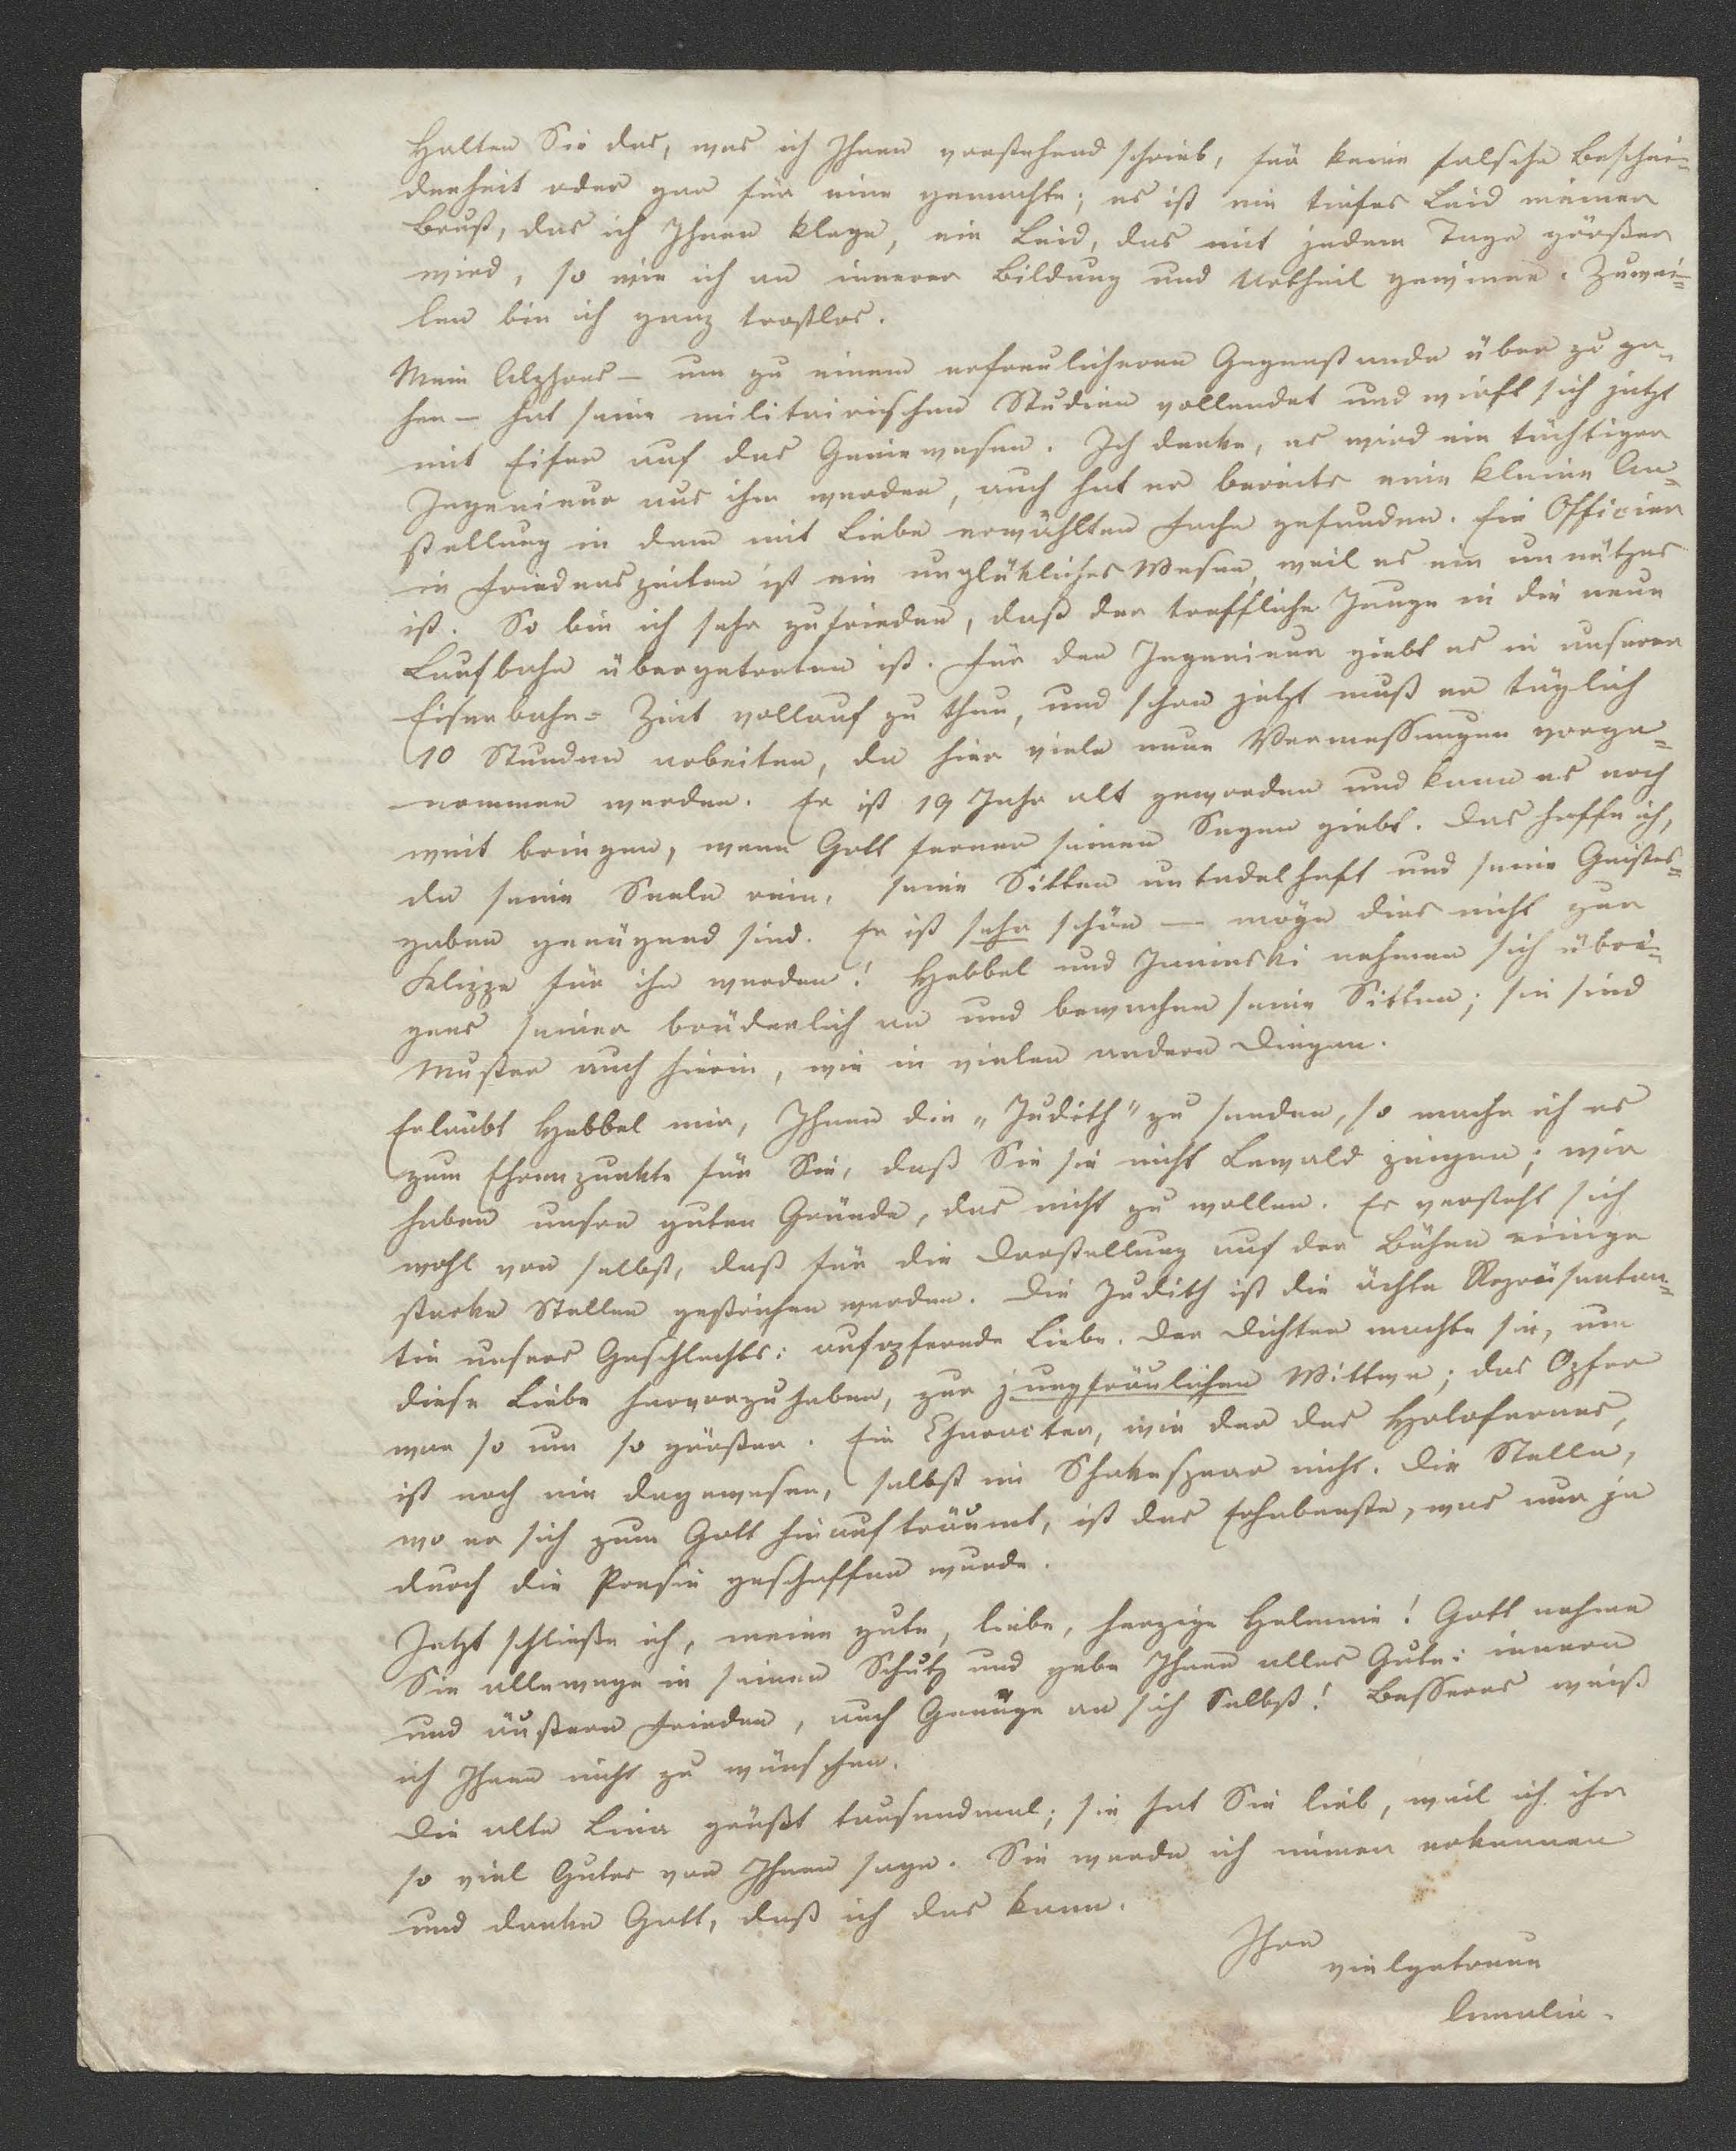 Halten Sie das, was ich Ihnen vorstehend schrieb, für keine falsche Beschei=
denheit oder gar für eine gemachte; es ist ein tiefes Leid meiner
Brust, das ich Ihnen klage, ein Leid, das mit jedem Tage größer
wird, so wie ich an innerer Bildung und Urtheil gewinne. Zuwei=
len bin ich ganz trostlos.
Mein Alphons — um zu einem erfreulicheren Gegenstande über zu ge=
hen — hat seine militairischen Studien vollendet und wirft sich jetzt
mit Eifer auf das Geniewesen. Ich denke, es wird ein tüchtiger
Ingenieur aus ihm werden, auch hat er bereits eine kleine An=
stellung in dem mit Liebe erwählten Fache gefunden. Ein Officier
in Friedenszeiten ist ein unglükliches Wesen, weil es ein unnützes
ist. So bin ich sehr zufrieden, daß der treffliche Junge in die neue
Laufbahn übergetreten ist. Für den Ingenieur giebt es in unserer
Eisenbahn=Zeit vollauf zu thun, und schon jetzt muß er täglich
10 Stunden arbeiten, da hier viele neue Vermessungen vorge=
nommen werden. Er ist 19 Jahr alt geworden und kann es noch
weit bringen, wenn Gott ferner seinen Segen giebt. Das hoffe ich,
da seine Seele rein, seine Sitten untadelhaft und seine Geistes=
gaben genügend sind. Er ist sehr schön — möge dies nicht zur
Klippe für ihn werden! Hebbel und Janinski nehmen sich übri=
gens seiner brüderlich an und bewachen seine Sitten; sie sind
Muster auch hierin, wie in vielen andern Dingen.
Erlaubt Hebbel mir, Ihnen die „Judith" zu senden, so mache ich es
zum Ehrenpunkte für Sie, daß Sie sie nicht Lewald zeigen; wir
haben unsre guten Gründe, das nicht zu wollen. Es versteht sich
wohl von selbst, daß für die Darstellung auf der Bühne einige
starke Stellen gestrichen werden. Die Judith ist die ächte Repräsentan=
tin unsers Geschlechts: aufopfernde Liebe. Der Dichter machte sie, um
diese Liebe hervorzuheben, zur jungfräulichen Wittwe; das Opfer
war so um so größer. Ein Character, wie der des Holofernes,
ist noch nie dagewesen, selbst im Shakespear nicht. Die Stelle,
wo er sich zum Gott hinaufträumt, ist das Erhabenste, was nur je
durch die Poesie geschaffen wurde.
Jetzt schließe ich, meine gute, liebe, herzige Helmine! Gott nehme
Sie allewege in seinen Schutz und gebe Ihnen alles Gute: innern
und äußern Frieden, auch Genüge an sich Selbst! Besseres weiß
ich Ihnen nicht zu wünschen.
Die alte Lina grüßt tausendmal; sie hat Sie lieb, weil ich ihr
so viel Gutes von Ihnen sage. Sie werde ich immer erkennen
und danke Gott, daß ich das kann.
Ihre
vielgetreue
Amalia.